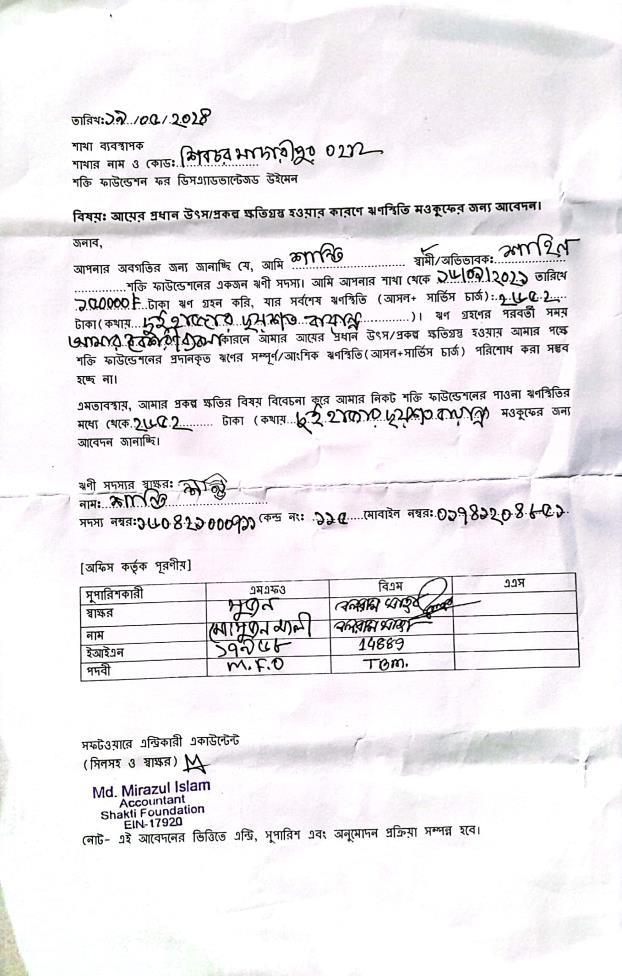 তারিখ: ১৯/০৫/২০২৪
শাখা ব্যবস্থাপক
শাখার নাম ও কোড: শিবচর মাদারীপুর ০২১২
শক্তি ফাউন্ডেশন ফর ডিসএ্যাডভান্টেজড উইমেন
বিষয়: আয়ের প্রধান উৎস/প্রকল্প ক্ষতিগ্রস্ত হওয়ার কারণে ঋণস্থিতি মওকুফের জন্য আবেদন।
জনাব,
আপনার অবগতির জন্য জানাচ্ছি যে, আমি শান্তি স্বামী/অভিভাবক: শাহিন
শক্তি ফাউন্ডেশনের একজন ঋণী সদস্য। আমি আপনার শাখা থেকে তারিখে
টাকা ঋণ গ্রহন করি, যার সর্বশেষ ঋণস্থিতি (আসল+ সার্ভিস চার্জ): ২৬৫২
টাকা (কথায় দুই হাজার ছয়শত বায়ান্ন)। ঋণ গ্রহণের পরবর্তী সময়
আমার কারনে আমার আয়ের প্রধান উৎস/প্রকল্প ক্ষতিগ্রস্ত হওয়ায় আমার পক্ষে
শক্তি ফাউন্ডেশনের প্রদানকৃত ঋণের সম্পূর্ণ/আংশিক ঋণস্থিতি (আসল+সার্ভিস চার্জ) পরিশোধ করা সম্ভব
হচ্ছে না।
এমতাবস্থায়, আমার প্রকল্প ক্ষতির বিষয় বিবেচনা করে আমার নিকট শক্তি ফাউন্ডেশনের পাওনা ঋণস্থিতির
মধ্যে থেকে ২৬৫২ টাকা (কথায় দুই হাজার ছয়শত বায়ান্ন মওকুফের জন্য
আবেদন জানাচ্ছি।
ঋণী সদস্যর স্বাক্ষর: শান্তি
নাম: শান্তি
সদস্য নম্বর: কেন্দ্র নং: ১১৫ মোবাইল নম্বর:
[অফিস কর্তৃক পূরণীয়]
সুপারিশকারী এমএফও বিএম এএস
স্বাক্ষর
নাম
ইআইএন 14889
পদবী M.F.O TBM.
সফটওয়ারে এন্ট্রিকারী একাউন্টেন্ট
(সিলসহ ও স্বাক্ষর)
Md. Mirazul Islam
Accountant
Shakti Foundation
EIN-17920
নোট- এই আবেদনের ভিত্তিতে এন্ট্রি, সুপারিশ এবং অনুমোদন প্রক্রিয়া সম্পন্ন হবে।